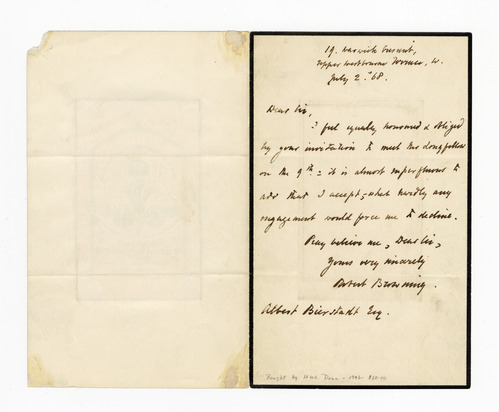 19. Warwick Crescent,
Upper Westbourne Terrace, W.
July 2. '68.
Dear Sir,
I feel equally honoured & obliged
by your invitation to meet Mr Longfellow
on the 9th. = it is almost superfluous to
add that I accept, - what hardly any
engagement would force me to decline.
Pray believe me, Dear Sir,
Yours very sincerely
Robert Browning.
Albert Bierstadt Esq.
Bought by H.W.L. Dana - 1942